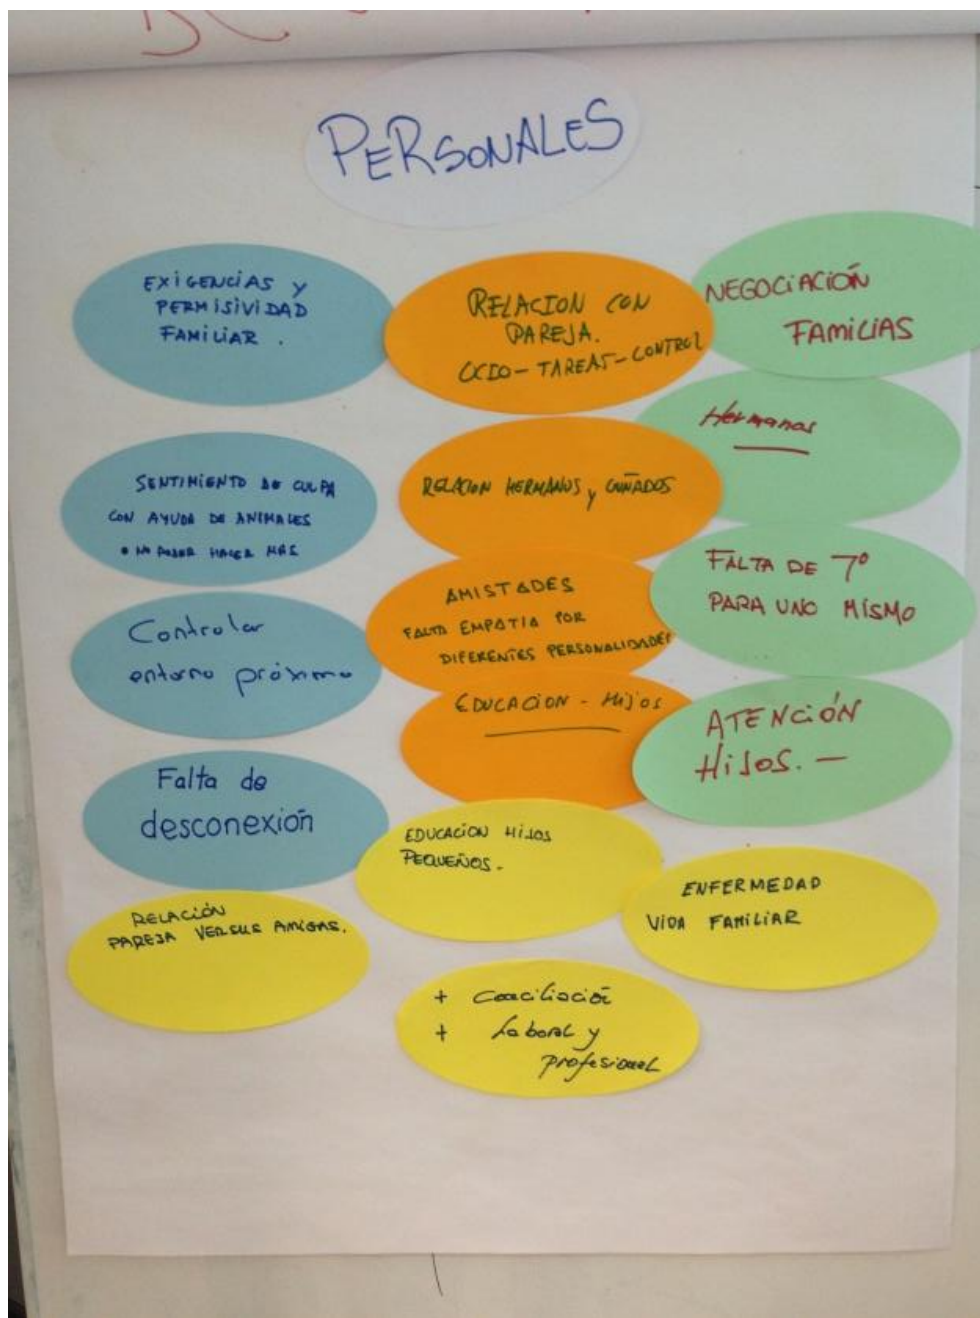 PERSONALES
EXIGENCIAS Y
PERMISIVIDAD
FAMILIAR.
SENTIMIENTO DE CULPA
CON AYUDA DE ANIMALES
• NO PODER HACER MÁS
Controlar
entorno próximo
Falta de
desconexión
RELACIÓN
PAREJA VERSUS AMIGAS.
RELACION CON
PAREJA.
OCIO - TAREAS - CONTROL
RELACION HERMANOS y CUÑADOS
AMISTADES
FALTA EMPATIA POR
DIFERENTES PERSONALIDADES
EDUCACION - Hijos
EDUCACIÓN HIJOS
PEQUEÑOS.
+ Conciliación
+ Laboral y
profesional
NEGOCIACIÓN
FAMILIAS
Hermanos
FALTA DE Tº
PARA UNO MISMO
ATENCIÓN
HiJOS. -
ENFERMEDAD
VIDA FAMILIAR